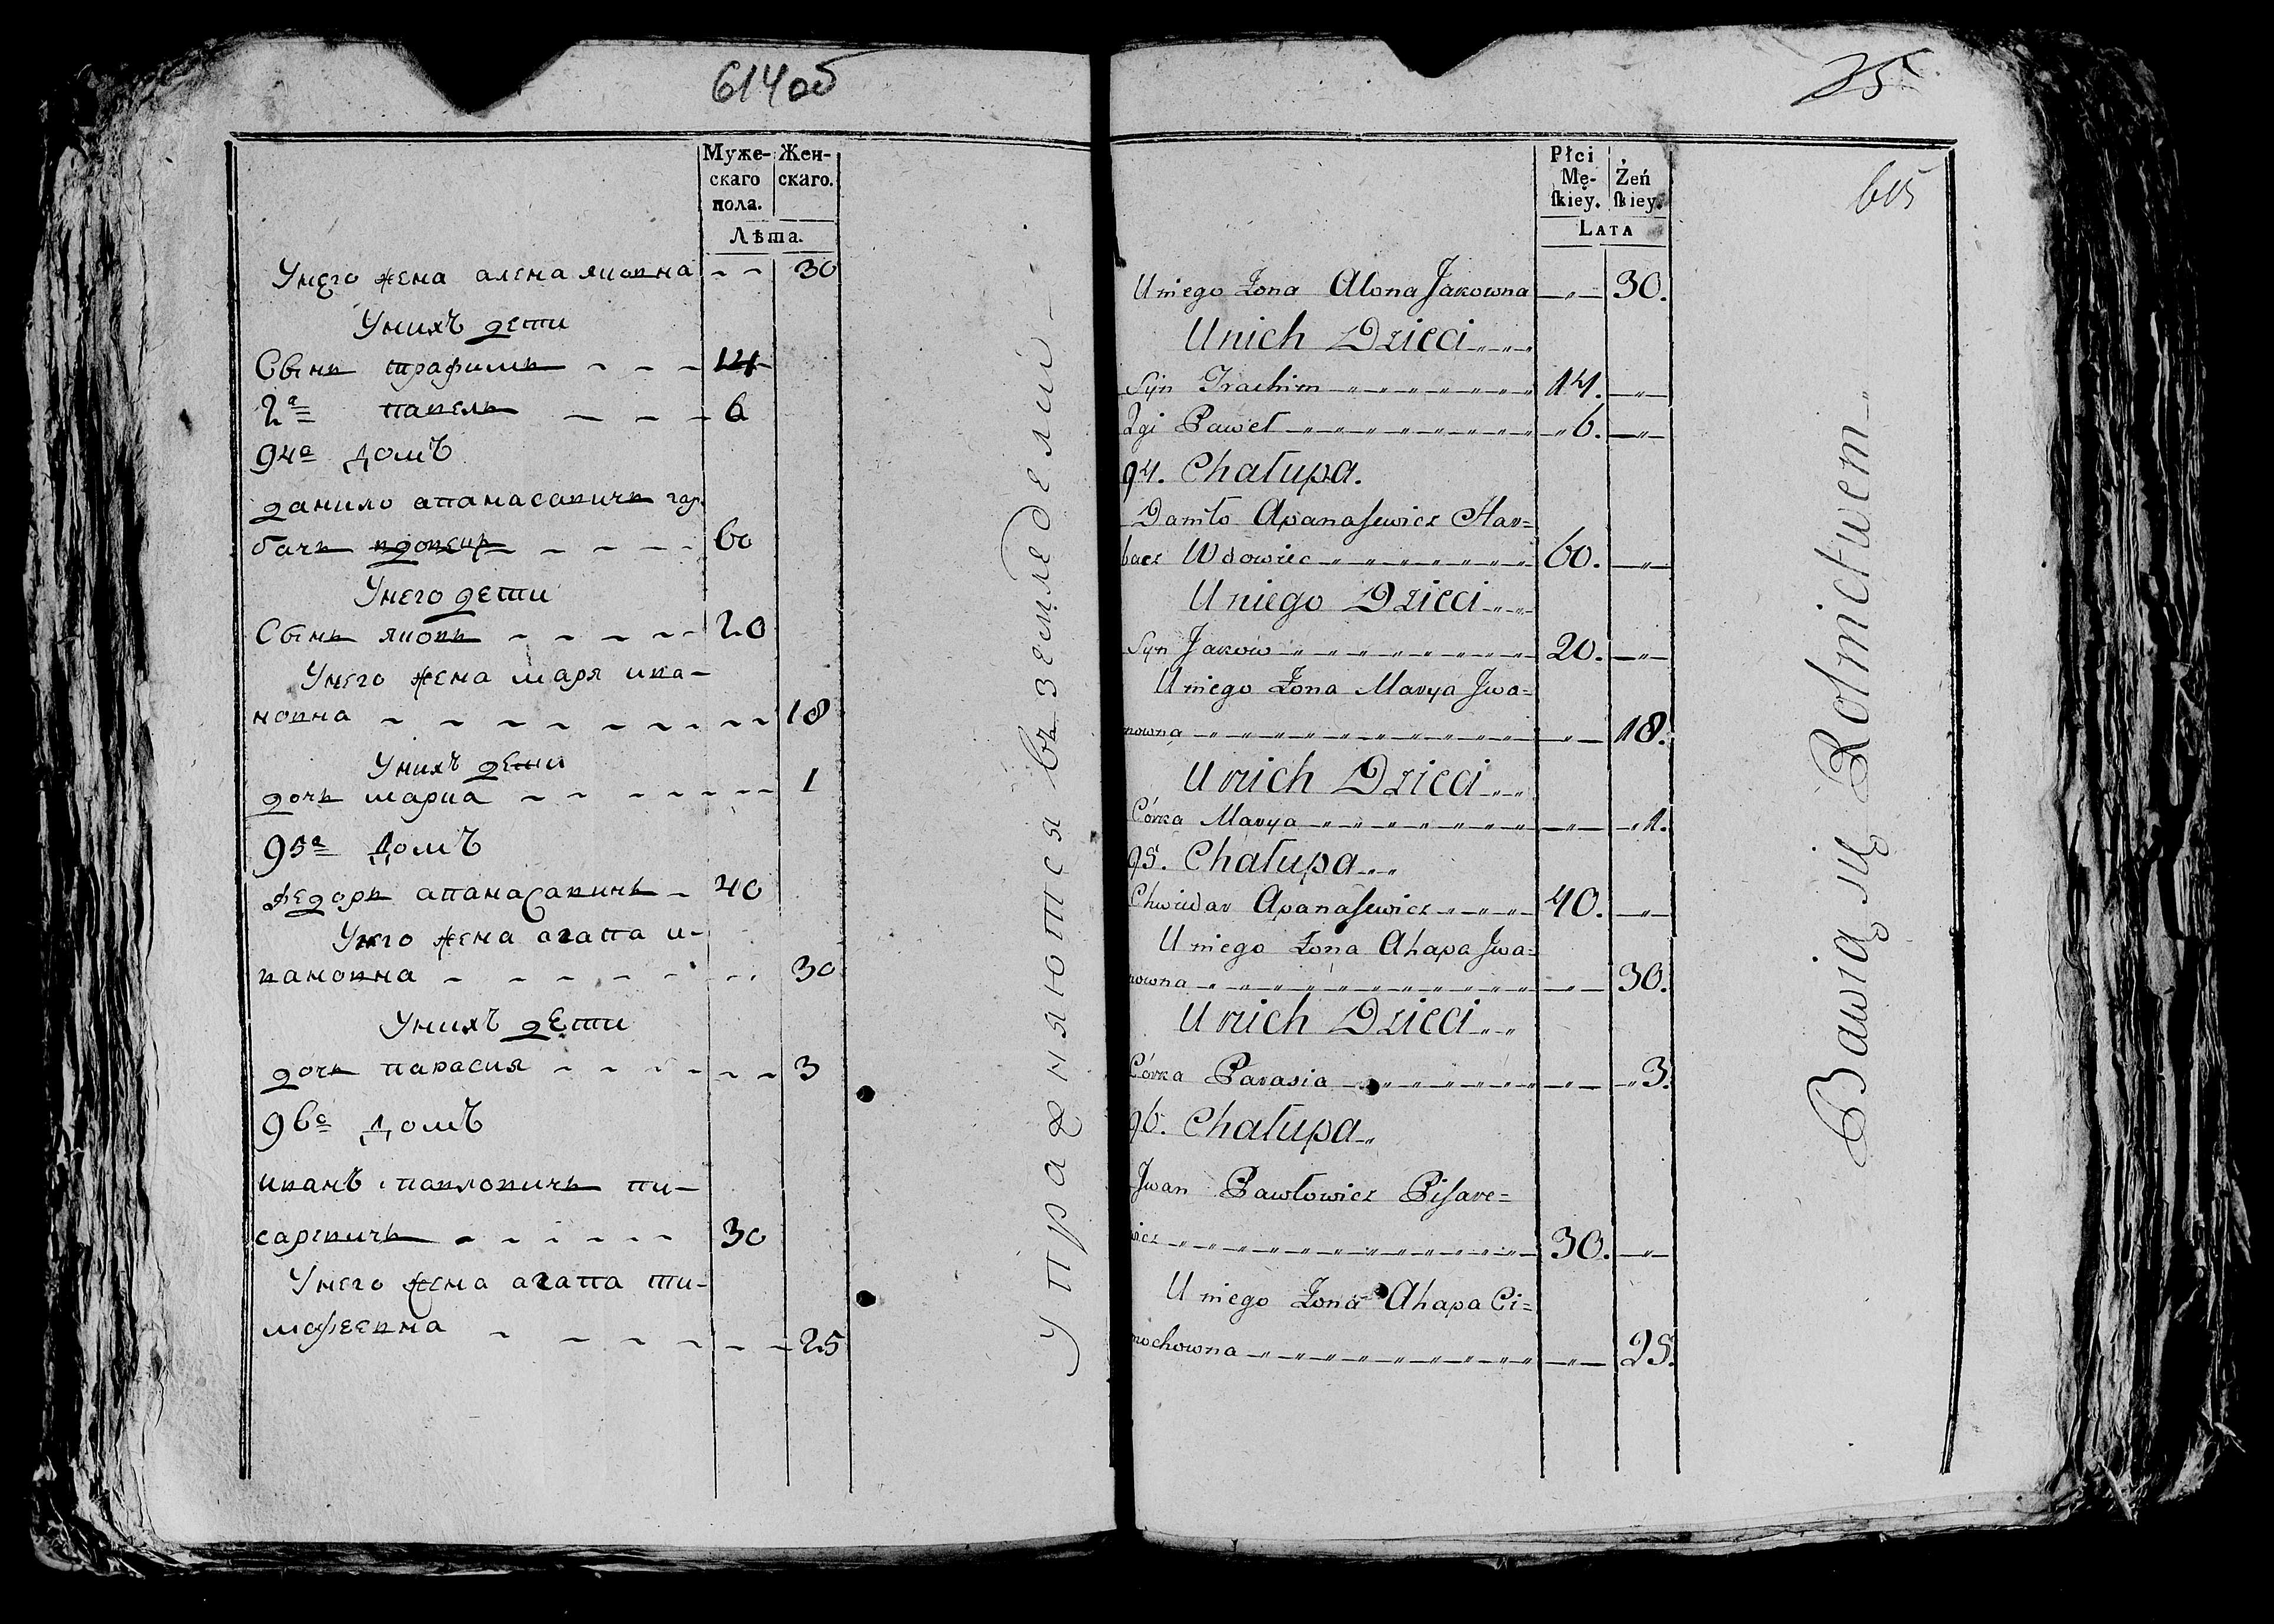 614об
Муже-
скаго
пола.
Жен-
скаго.
Лѣта.
Унего жена алена яковна - - 30
Унихъ дети
Сынъ трафимъ - - - 14
2й павелъ - - - 6
94й домъ
данило апанасавичъ гар
бачъ вдовецъ - - - - - 60
Унего дети
Сынъ яковъ - - - - - 20
Унего жена маря ива-
новна - - - - - - - - - 18
Унихъ дети
дочь мариа - - - - - - - 1
95й домъ
федоръ апанасавичъ - 40
Унего жена агапа и-
вановна - - - - - - - - 30
Унихъ дети
дочь парасия - - - - - - - 3
96й домъ
иванъ павловичъ пи-
саревичъ - - - - - - 30
Унего жена агапа ти-
мафеевна - - - - - - - 25
Упражняются въ земледелии
35
615
Płci
Mę-
skiey.
Żeń
skiey.
LATA
Uniego Żona Alona Jakowna 30.
Unich Dzieci
Syn Trachim 14.
2gi Paweł 6.
94. Chałupa.
Daniło Apanasewicz Har=
bacz Wdowiec 60.
Uniego Dzieci
Syn Jakow 20.
Uniego Żona Marya Jwa=
nowna 18.
Unich Dzieci
Córka Marya 1.
95. Chałupa
Chwiedar Apanasewicz 40.
Uniego Żona Ahapa Jwa=
nowna 30.
Unich Dzieci
Córka Parasia 3.
96. Chałupa
Jwan Pawłowicz Pisare=
wicz 30.
Uniego Żona Ahapa Ci=
mochowna 25.
Bawią się Rolnictwem